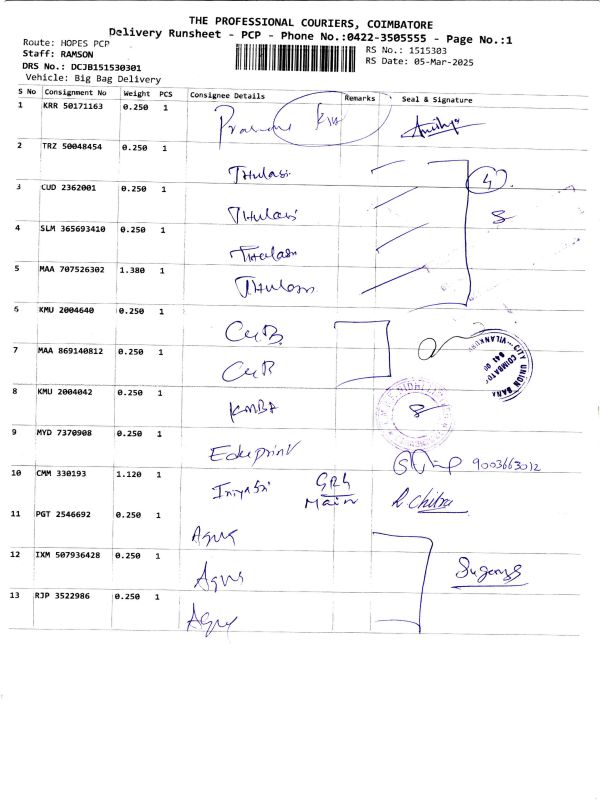 THE PROFESSIONAL COURIERS, COIMBATORE
Delivery Runsheet - PCP - Phone No.:0422-3505555 - Page No.:1
Route: HOPES PCP
RS No.: 1515303
Staff: RAMSON
RS Date: 05-Mar-2025
DRS No.: DCJB151530301
Vehicle: Big Bag Delivery
S No Consignment No Weight PCS Consignee Details Remarks Seal & Signature
1 KRR 50171163 0.250 1
2 TRZ 50048454 0.250 1 THulasi 4
3 CUD 2362001 0.250 1 THulasi
4 SLM 365693410 0.250 1 THulasi
5 MAA 707526302 1.380 1 THulasi
6 KMU 2004640 0.250 1 CUB
7 MAA 869140812 0.250 1 CUB
CITY UNION BANK
8 KMU 2004042 0.250 1 KMBA
9 MYD 7370908 0.250 1 Eduprint 9003663012
10 CMM 330193 1.120 1 Main R. Chitra
11 PGT 2546692 0.250 1
12 IXM 507936428 0.250 1
13 RJP 3522986 0.250 1